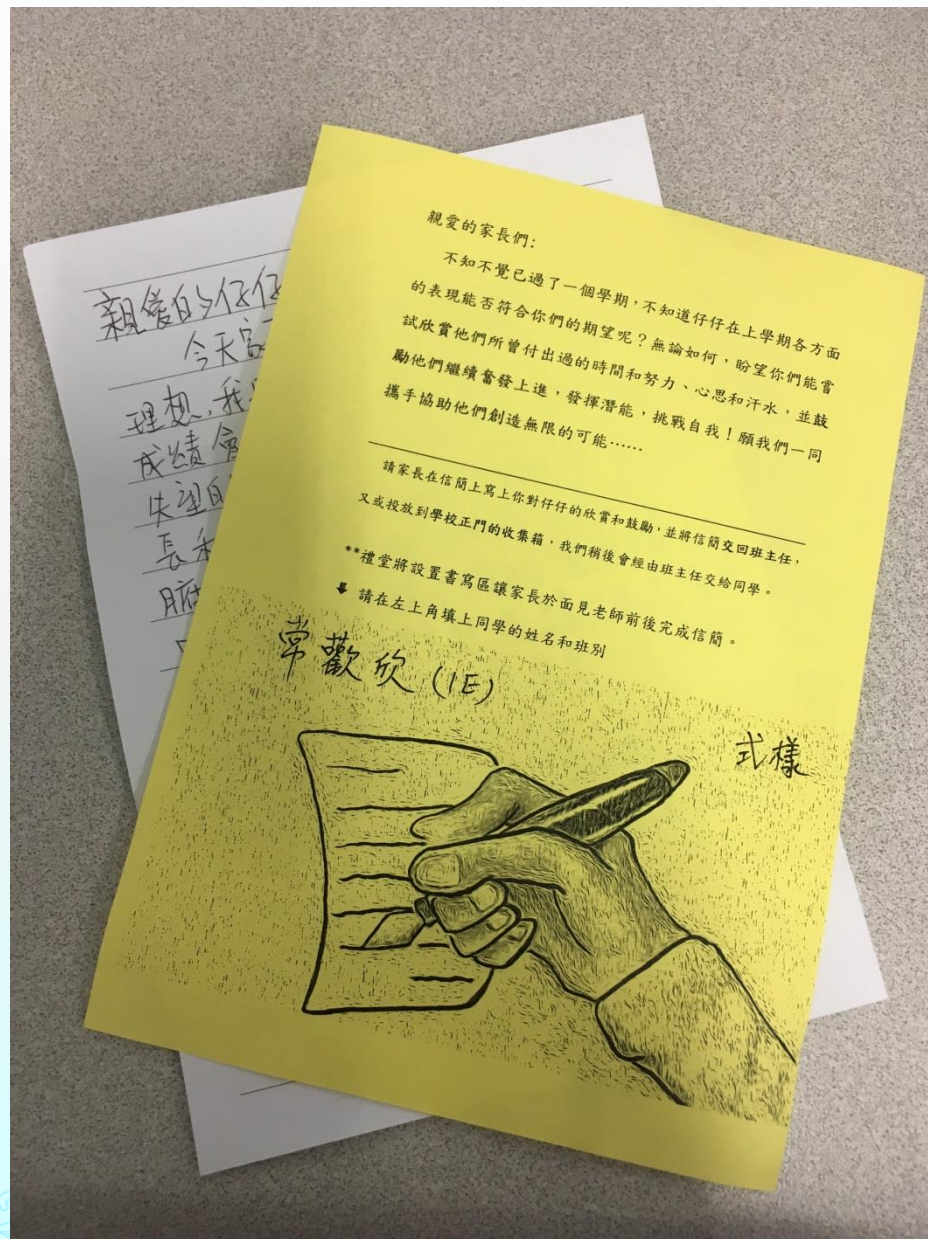 親愛的家長們:
不知不覺已過了一個學期,不知道仔仔在上學期各方面
的表現能否符合你們的期望呢?無論如何,盼望你們能嘗
試欣賞他們所曾付出過的時間和努力、心思和汗水,並鼓
勵他們繼續奮發上進,發揮潛能,挑戰自我!願我們一同
攜手協助他們創造無限的可能……
請家長在信簡上寫上你對仔仔的欣賞和鼓勵,並將信簡交回班主任,
又或投放到學校正門的收集箱,我們稍後會經由班主任交給同學。
**禮堂將設置書寫區讓家長於面見老師前後完成信簡。
⬇ 請在左上角填上同學的姓名和班別
常歡欣 (1E)
式樣
親愛的仔仔
今天
理想,我
成績會
失望
長和